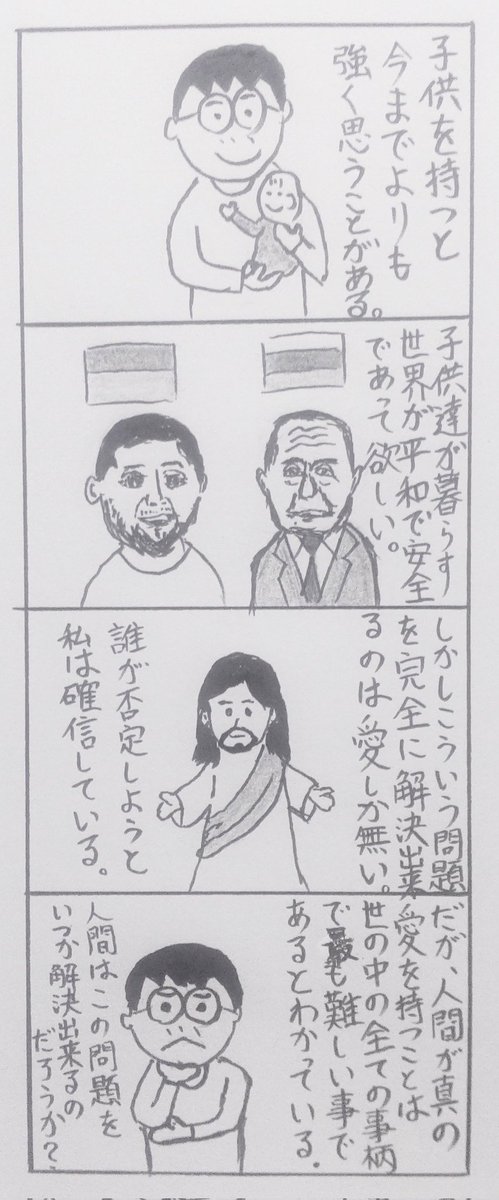 子供を持つと
今までよりも
強く思うことがある。
子供達が暮らす
世界が平和で安全
であって欲しい。
しかしこういう問題
を完全に解決出来
るのは愛しか無い。
誰が否定しようと
私は確信している。
だが、人間が真の
愛を持つことは
世の中の全ての事柄
で最も難しい事で
あるとわかっている。
人間はこの問題を
いつか解決出来るの
だろうか?